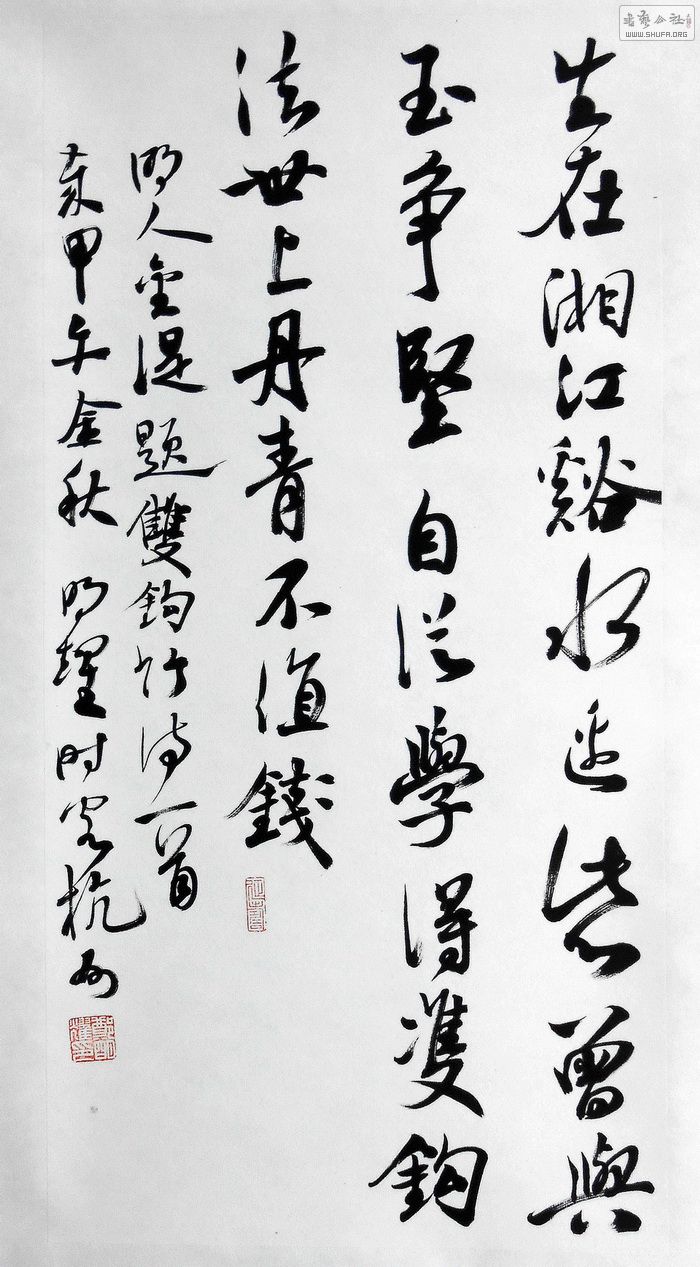 書藝公社
WWW.SHUFA.ORG
生在湘江谿水邊此心曾與
玉争堅自從學得雙鈎
法世上丹青不值錢
明人金湜題雙鈎竹詩一首
歲甲午金秋 明耀时客杭州